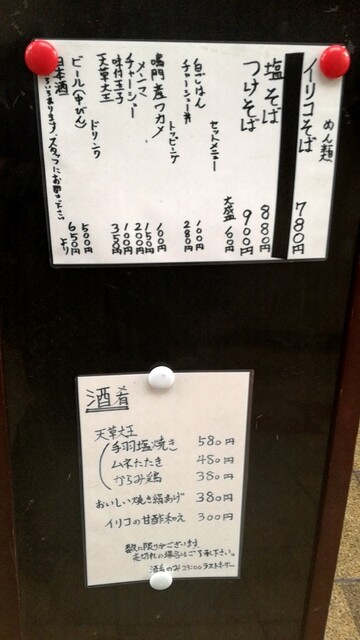 めん麺
イリコそば 780円
塩そば 880円
つけそば 900円
大盛 60円
セットメニュー
白ごはん 100円
チャーシュー丼 280円
トッピング
鳴門産ワカメ 100円
メンマ 150円
チャーシュー 200円
味付玉子 100円
天草大王 350円
ドリンク
ビール(中びん) 500円
日本酒 650円より
いろいろあります。スタッフにお聞き下さい
酒肴
天草大王
手羽塩焼き 580円
ムネたたき 480円
からみ鶏 380円
おいしい焼き絹あげ 380円
イリコの甘酢和え 300円
数に限りがございます
売切れの場合はご了承下さい。
酒肴のみ23:00ラストオーダー